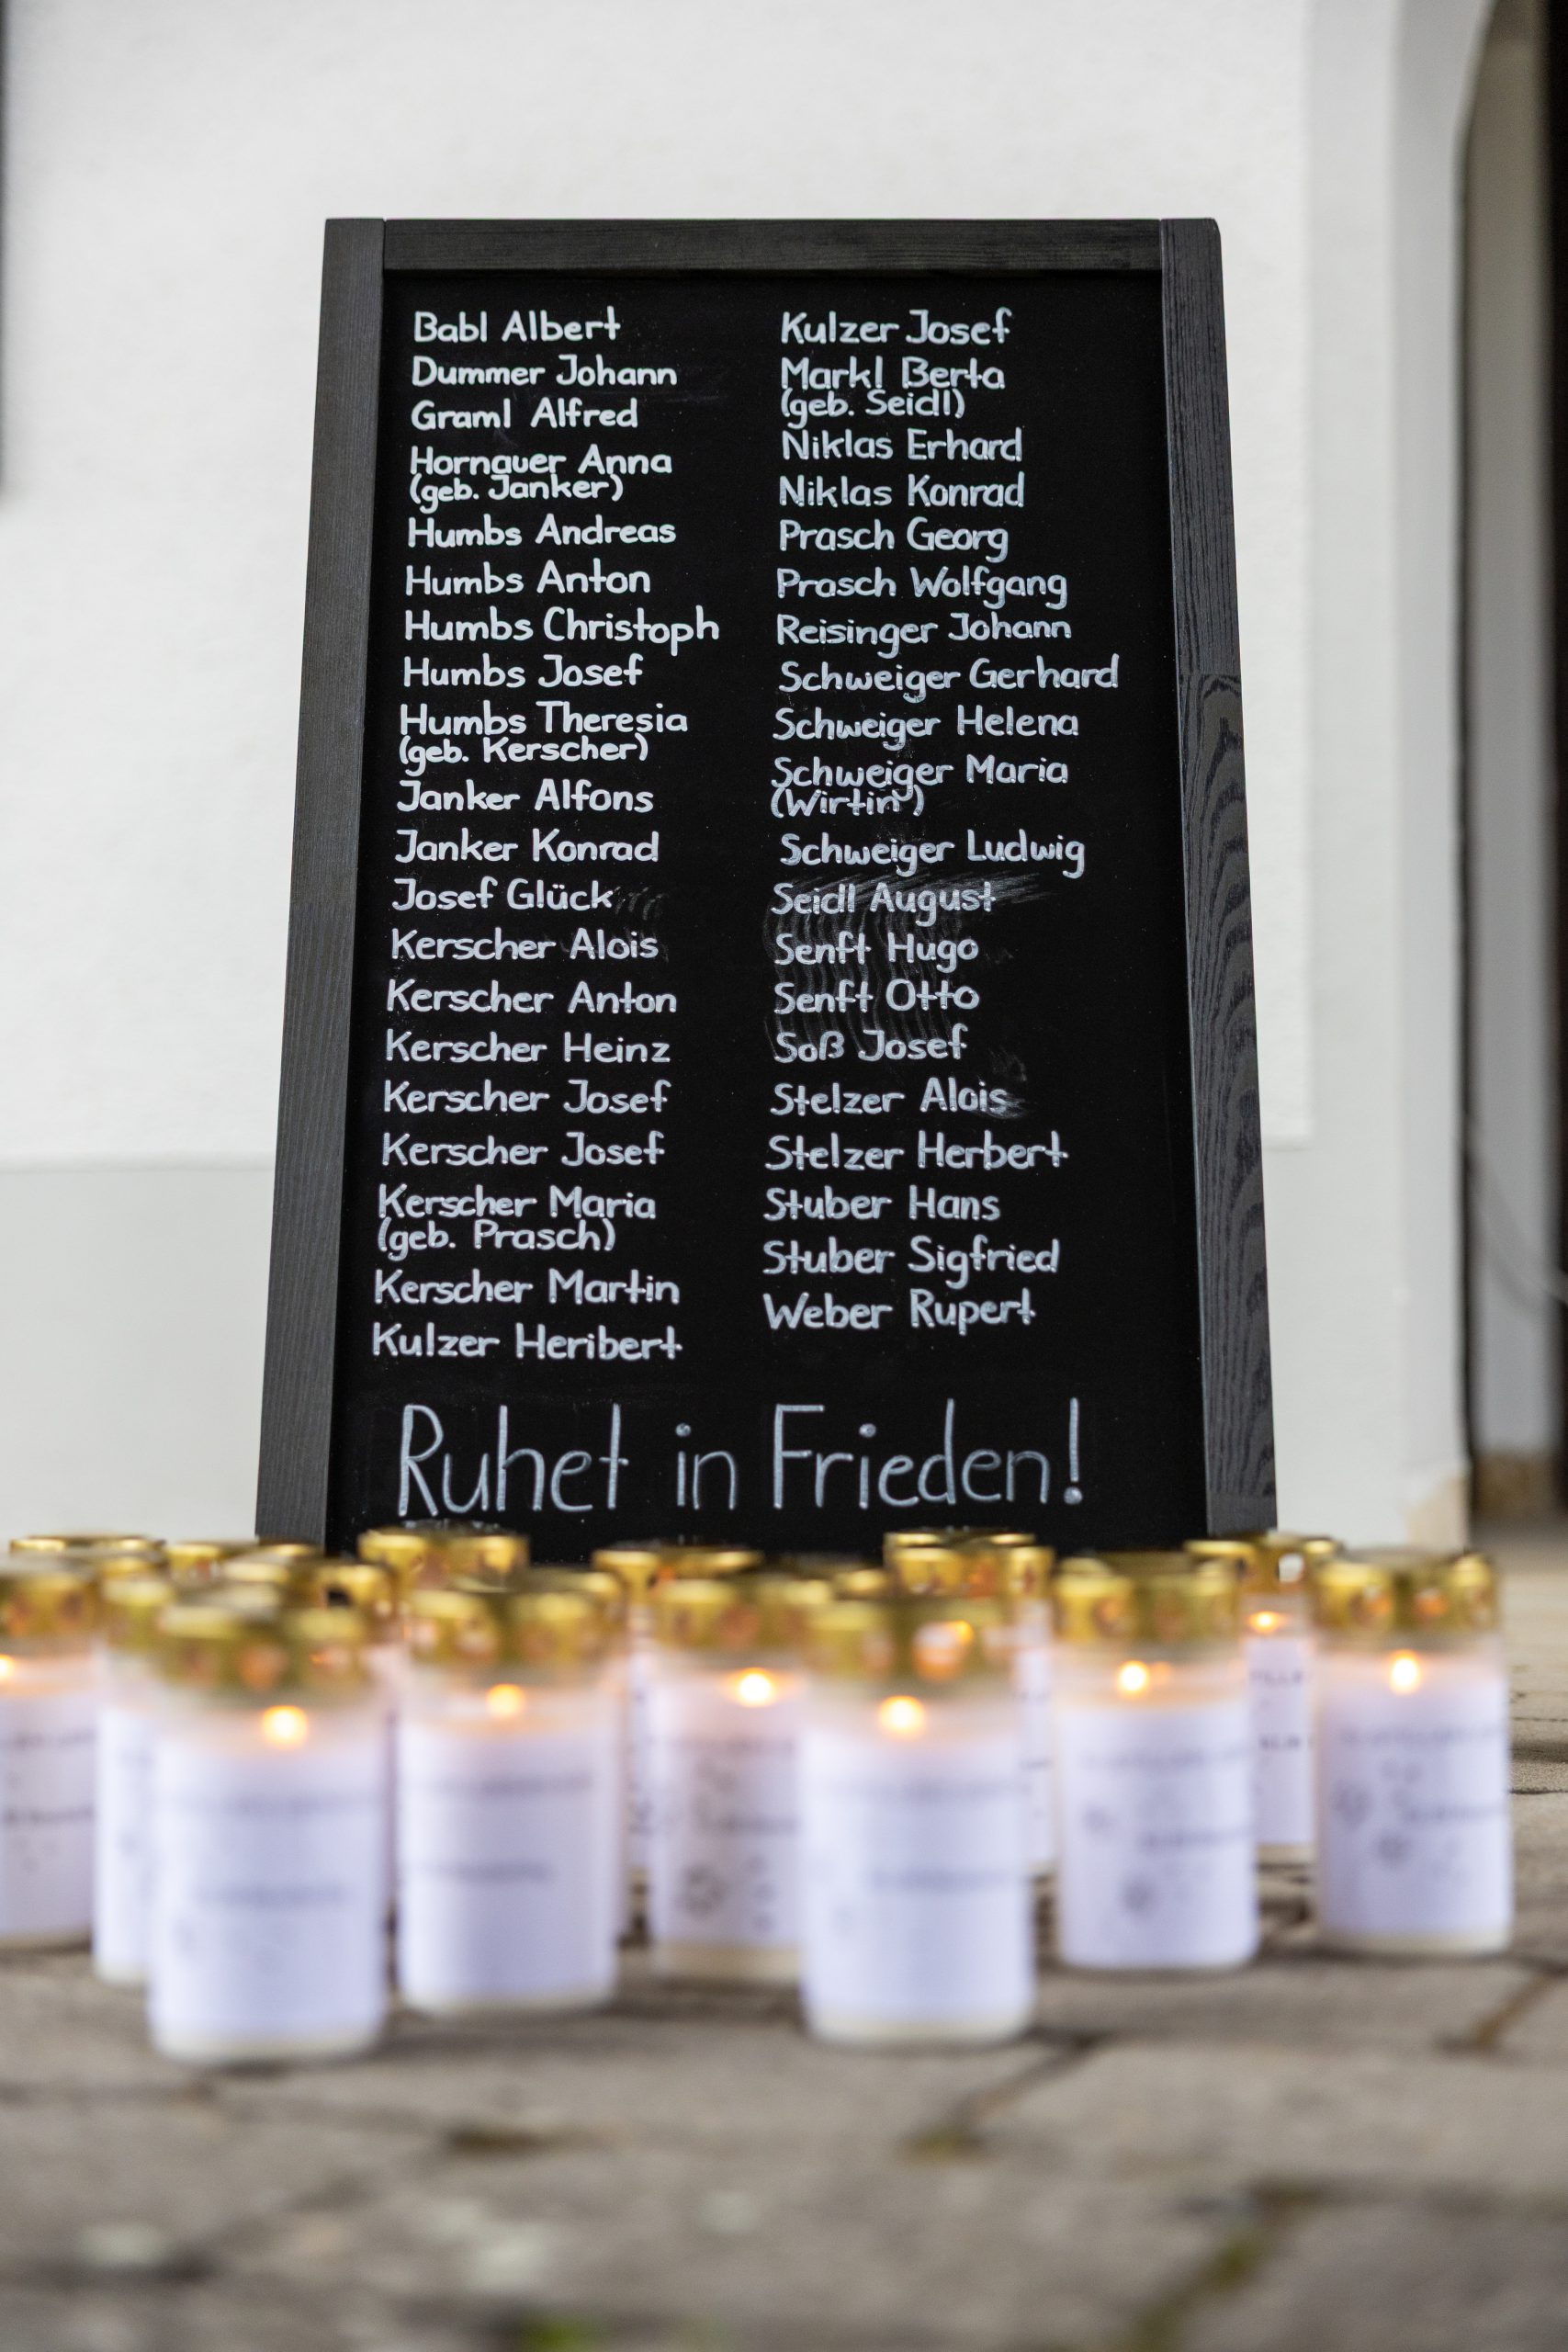 Babl Albert
Dummer Johann
Graml Alfred
Hornauer Anna
(geb. Janker)
Humbs Andreas
Humbs Anton
Humbs Christoph
Humbs Josef
Humbs Theresia
(geb. Kerscher)
Janker Alfons
Janker Konrad
Josef Glück
Kerscher Alois
Kerscher Anton
Kerscher Heinz
Kerscher Josef
Kerscher Josef
Kerscher Maria
(geb. Prasch)
Kerscher Martin
Kulzer Heribert
Kulzer Josef
Markl Berta
(geb. Seidl)
Niklas Erhard
Niklas Konrad
Prasch Georg
Prasch Wolfgang
Reisinger Johann
Schweiger Gerhard
Schweiger Helena
Schweiger Maria
(Wirtin)
Schweiger Ludwig
Seidl August
Senft Hugo
Senft Otto
Soß Josef
Stelzer Alois
Stelzer Herbert
Stuber Hans
Stuber Sigfried
Weber Rupert
Ruhet in Frieden!